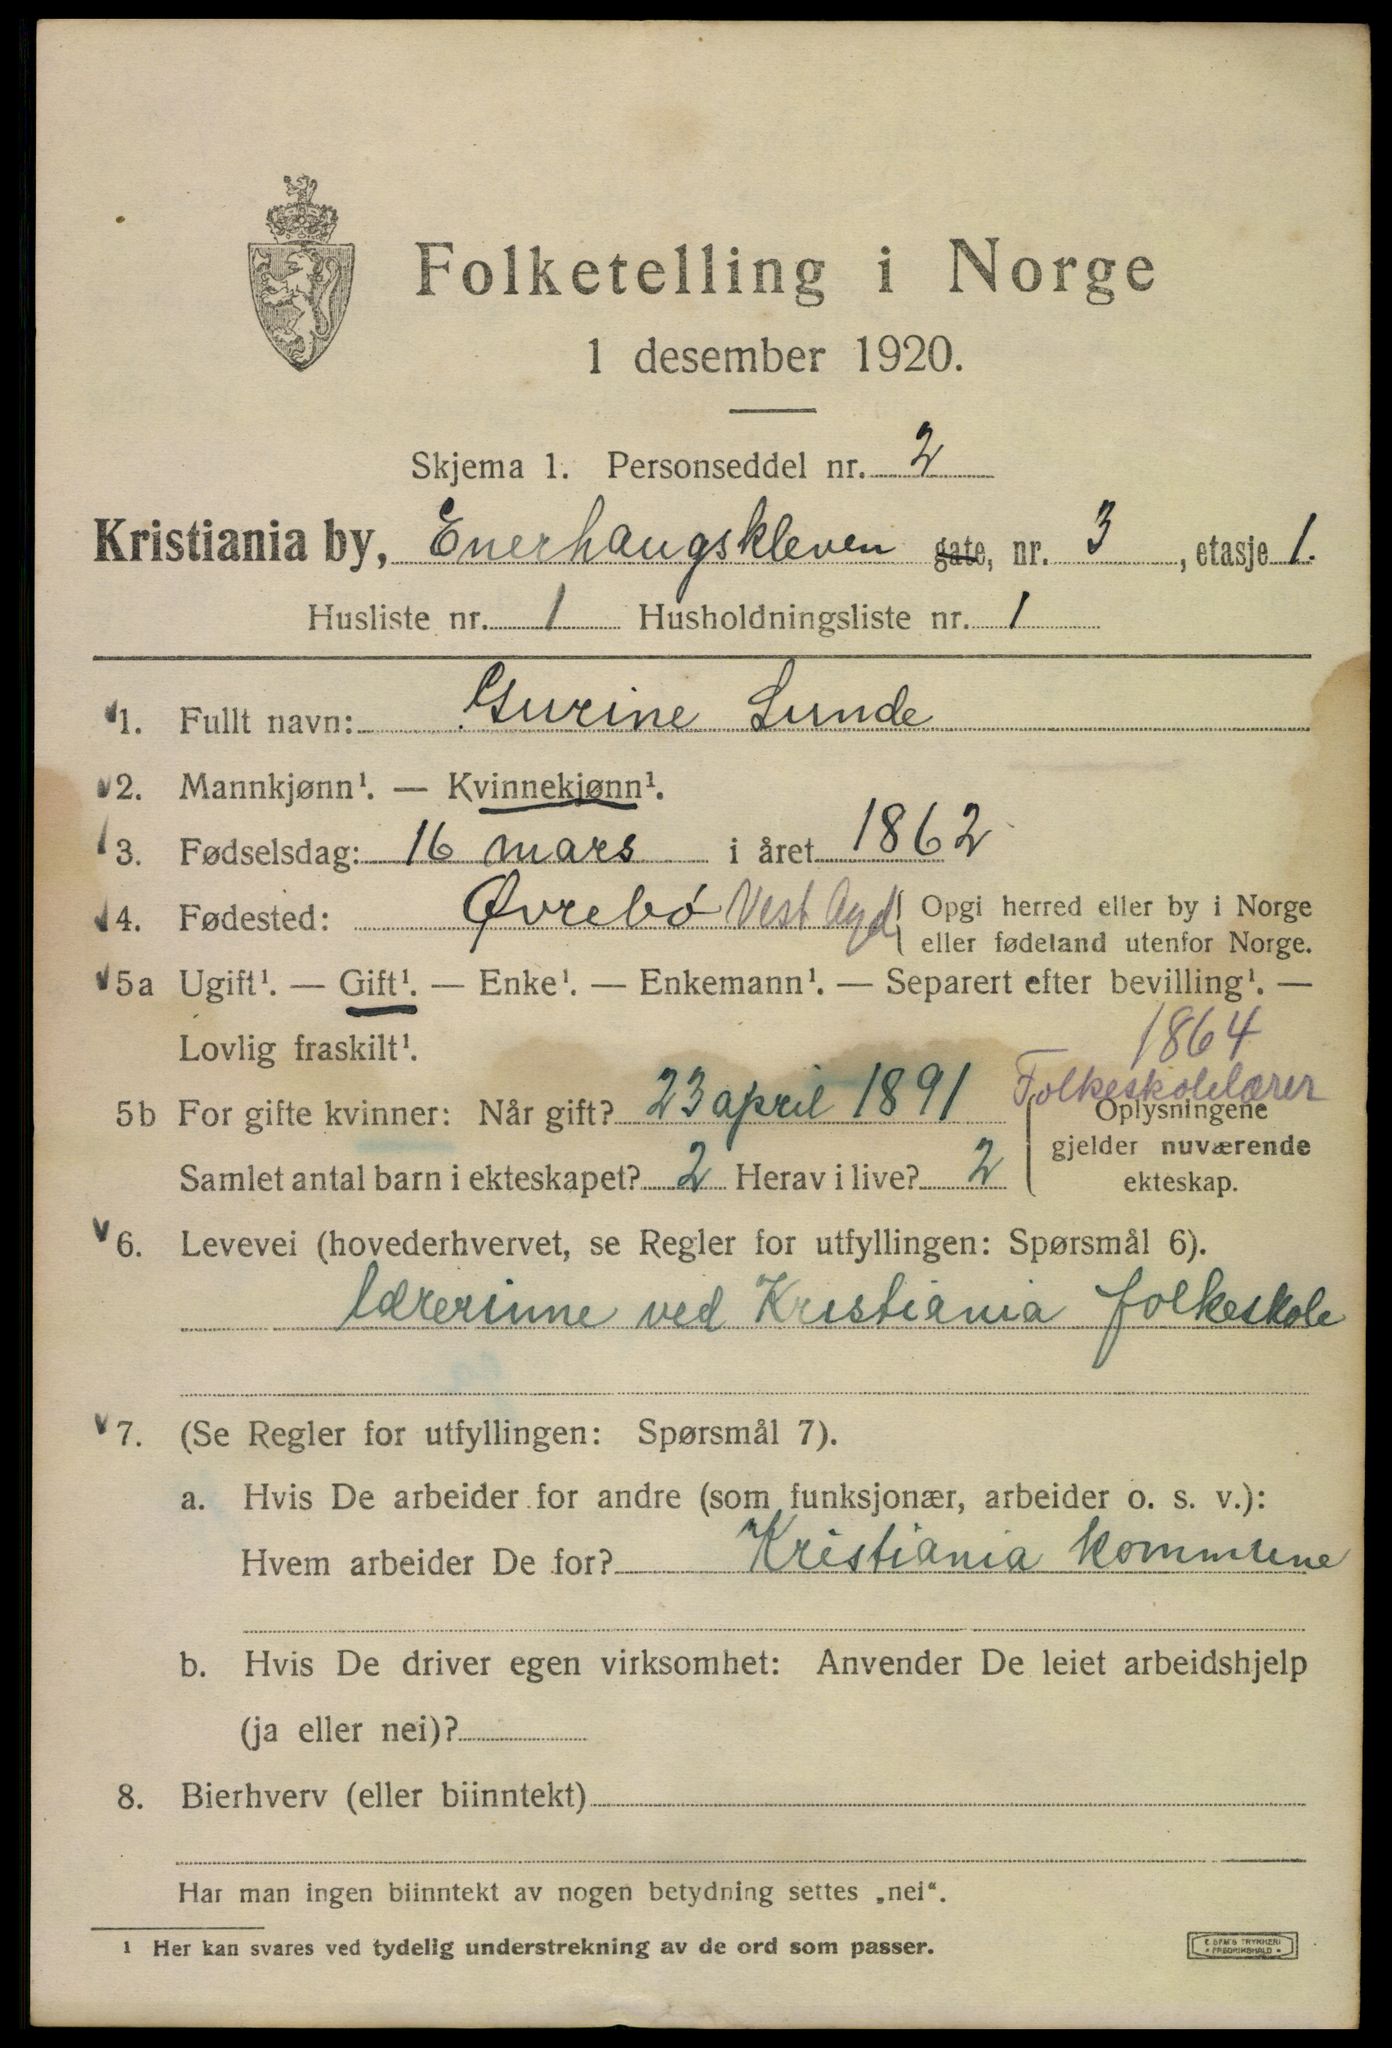 Folketelling i Norge
1 desember 1920.
Skjema 1. Personseddel nr. 2
Kristiania by, Enerhaugskleven gate, nr. 3, etasje 1.
Husliste nr. 1 Husholdningsliste nr. 1
1. Fullt navn: Gurine Lunde
2. Mannkjønn¹. — Kvinnekjønn¹.
3. Fødselsdag: 16 mars i året 1862
4. Fødested: Øvrebö Vest Agd Opgi herred eller by i Norge
eller fødeland utenfor Norge.
5a Ugift¹. — Gift¹. — Enke¹. — Enkemann¹. — Separert efter bevilling¹. —
Lovlig fraskilt¹. 1864
Folkeskolelærer
5b For gifte kvinner: Når gift? 23 april 1891 Oplysningene
gjelder nuværende
Samlet antal barn i ekteskapet? 2 Herav i live? 2 ekteskap.
6. Levevei (hovederhvervet, se Regler for utfyllingen: Spørsmål 6).
lærerinne ved Kristiania folkeskole
7. (Se Regler for utfyllingen: Spørsmål 7).
a. Hvis De arbeider for andre (som funksjonær, arbeider o. s. v.):
Hvem arbeider De for? Kristiania kommune
b. Hvis De driver egen virksomhet: Anvender De leiet arbeidshjelp
(ja eller nei)?
8. Bierhverv (eller biinntekt)
Har man ingen biinntekt av nogen betydning settes „nei“.
¹ Her kan svares ved tydelig understrekning av de ord som passer.
TRYKKERI
FREDRIKSHALD